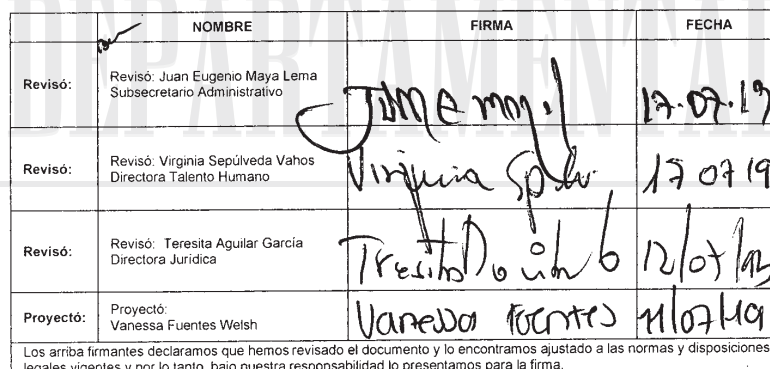 DEPARTAMENTAL
NOMBRE FIRMA FECHA
Revisó: Revisó: Juan Eugenio Maya Lema
Subsecretario Administrativo 17.07.19
Revisó: Revisó: Virginia Sepúlveda Vahos
Directora Talento Humano Virginia 17 07 19
Revisó: Revisó: Teresita Aguilar García
Directora Jurídica 12/07/
Proyectó: Proyectó:
Vanessa Fuentes Welsh Vanessa Fuentes 11/07/19
Los arriba firmantes declaramos que hemos revisado el documento y lo encontramos ajustado a las normas y disposiciones
legales vigentes y por lo tanto, bajo nuestra responsabilidad lo presentamos para la firma.